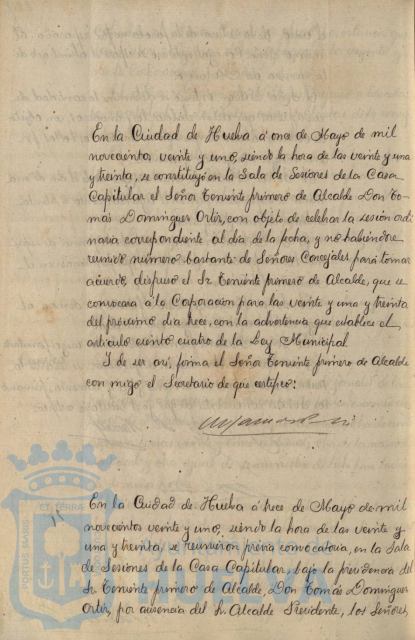 En la Ciudad de Huelva á once de Mayo de mil
novecientos veinte y uno, siendo la hora de las veinte y una
y treinta, se constituyó en la Sala de Sesiones de la Casa
Capitular el Señor Teniente primero de Alcalde Don To-
más Dominguez Ortiz, con objeto de celebrar la sesión ordi-
naria correspondiente al día de la fecha, y no habiéndose
reunido número bastante de Señores Concejales para tomar
acuerdo, dispuso el Sr. Teniente primero de Alcalde, que se
convocara á la Corporación para las veinte y una y treinta
del próximo día trece, con la advertencia que establece el
artículo ciento cuatro de la Ley Municipal
Y de ser así, firma el Señor Teniente primero de Alcalde
con migo el Secretario de que certifico:
En la Ciudad de Huelva á trece de Mayo de mil
novecientos veinte y uno, siendo la hora de las veinte y
una y treinta, se reunieron previa convocatoria, en la Sala
de Sesiones de la Casa Capitular, bajo la presidencia del
Sr. Teniente primero de Alcalde, Don Tomás Dominguez
Ortiz, por ausencia del Sr. Alcalde Presidente, los Señores,
PORTUS MARIS
ET TERRÆ
Ayuntamiento de
HUELVA